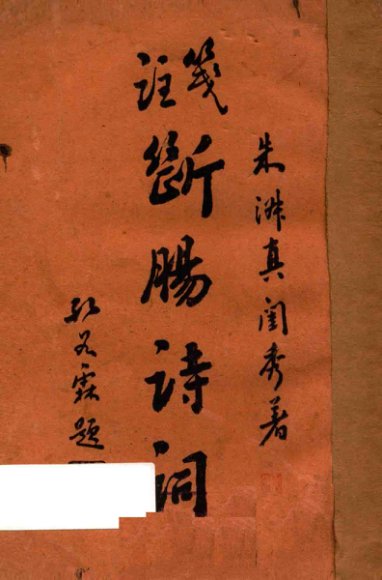 朱淑真閨秀著
箋註斷腸詩詞
若霖題